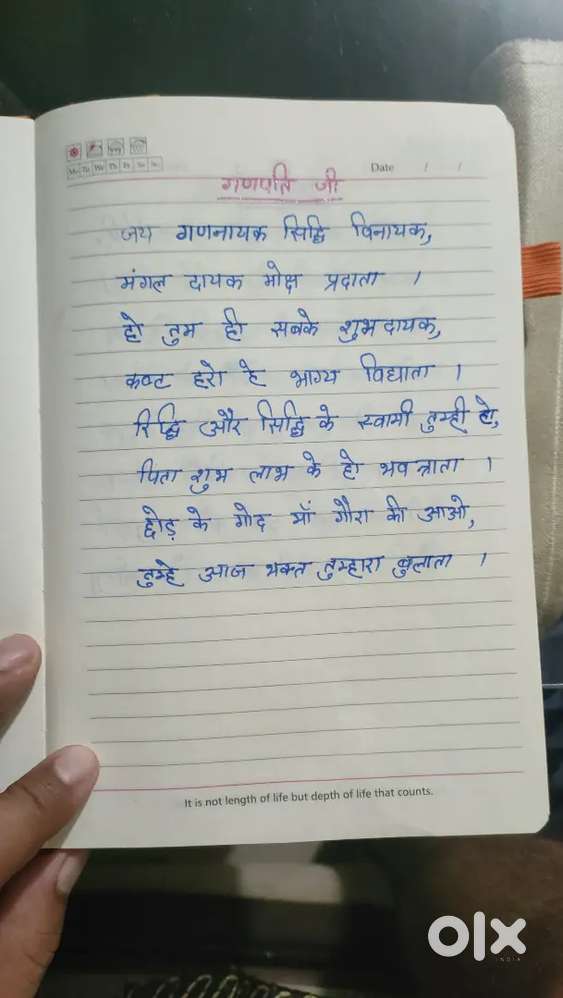 Mo Tu We Th Fr Sa Su
Date / /
गणपति जी
जय गणनायक सिद्धि विनायक,
मंगल दायक मोक्ष प्रदाता ।
हो तुम ही सबके शुभदायक,
कष्ट हरो हे भाग्य विधाता ।
रिद्धि और सिद्धि के स्वामी तुम्ही हो,
पिता शुभ लाभ के हो भवत्राता ।
छोड़ के गोद माँ गौरा की आओ,
तुम्हे आज भक्त तुम्हारा बुलाता ।
It is not length of life but depth of life that counts.
olx
INDIA